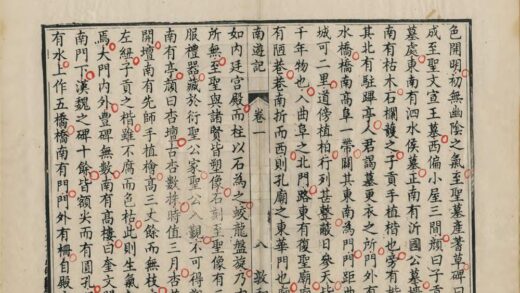 色開明初無幽陰之氣至聖墓產蓍草碑曰
成至聖文宣王墓西偏小屋三間顏曰子貢
墓處東南有泗水侯墓正南有沂國公墓
南有枯木石欄護之子貢手植楷也旁有楷
其北有駐蹕亭人君謁墓更衣之所門外有
水橋橋南高阜一帶關其東南為門門距曲
城可二里道傍植柏行列甚整蔽日參天皆
千年物也入曲阜之北門路東有復聖廟廟
有陋巷巷南折而西則孔廟之東華門也
南遊記 卷一 八
如內廷宮殿而柱以石為之蛟龍盤旋乃
所無至聖與諸賢皆塑像石刻至聖像有
服禮器藏於衍聖公家聖公入覲不可得
南有亭顏曰杏壇古杏數株時值三月杏
開壇南有先師手植檜高三丈餘而無枝
左紐子貢之楷雖不腐而色枯此則生氣
焉大門內外豐碑無數南有高樓曰奎文
南門下漢魏之碑十餘皆額尖而有圓孔
有水上作五橋橋南有門門外有柵自殿